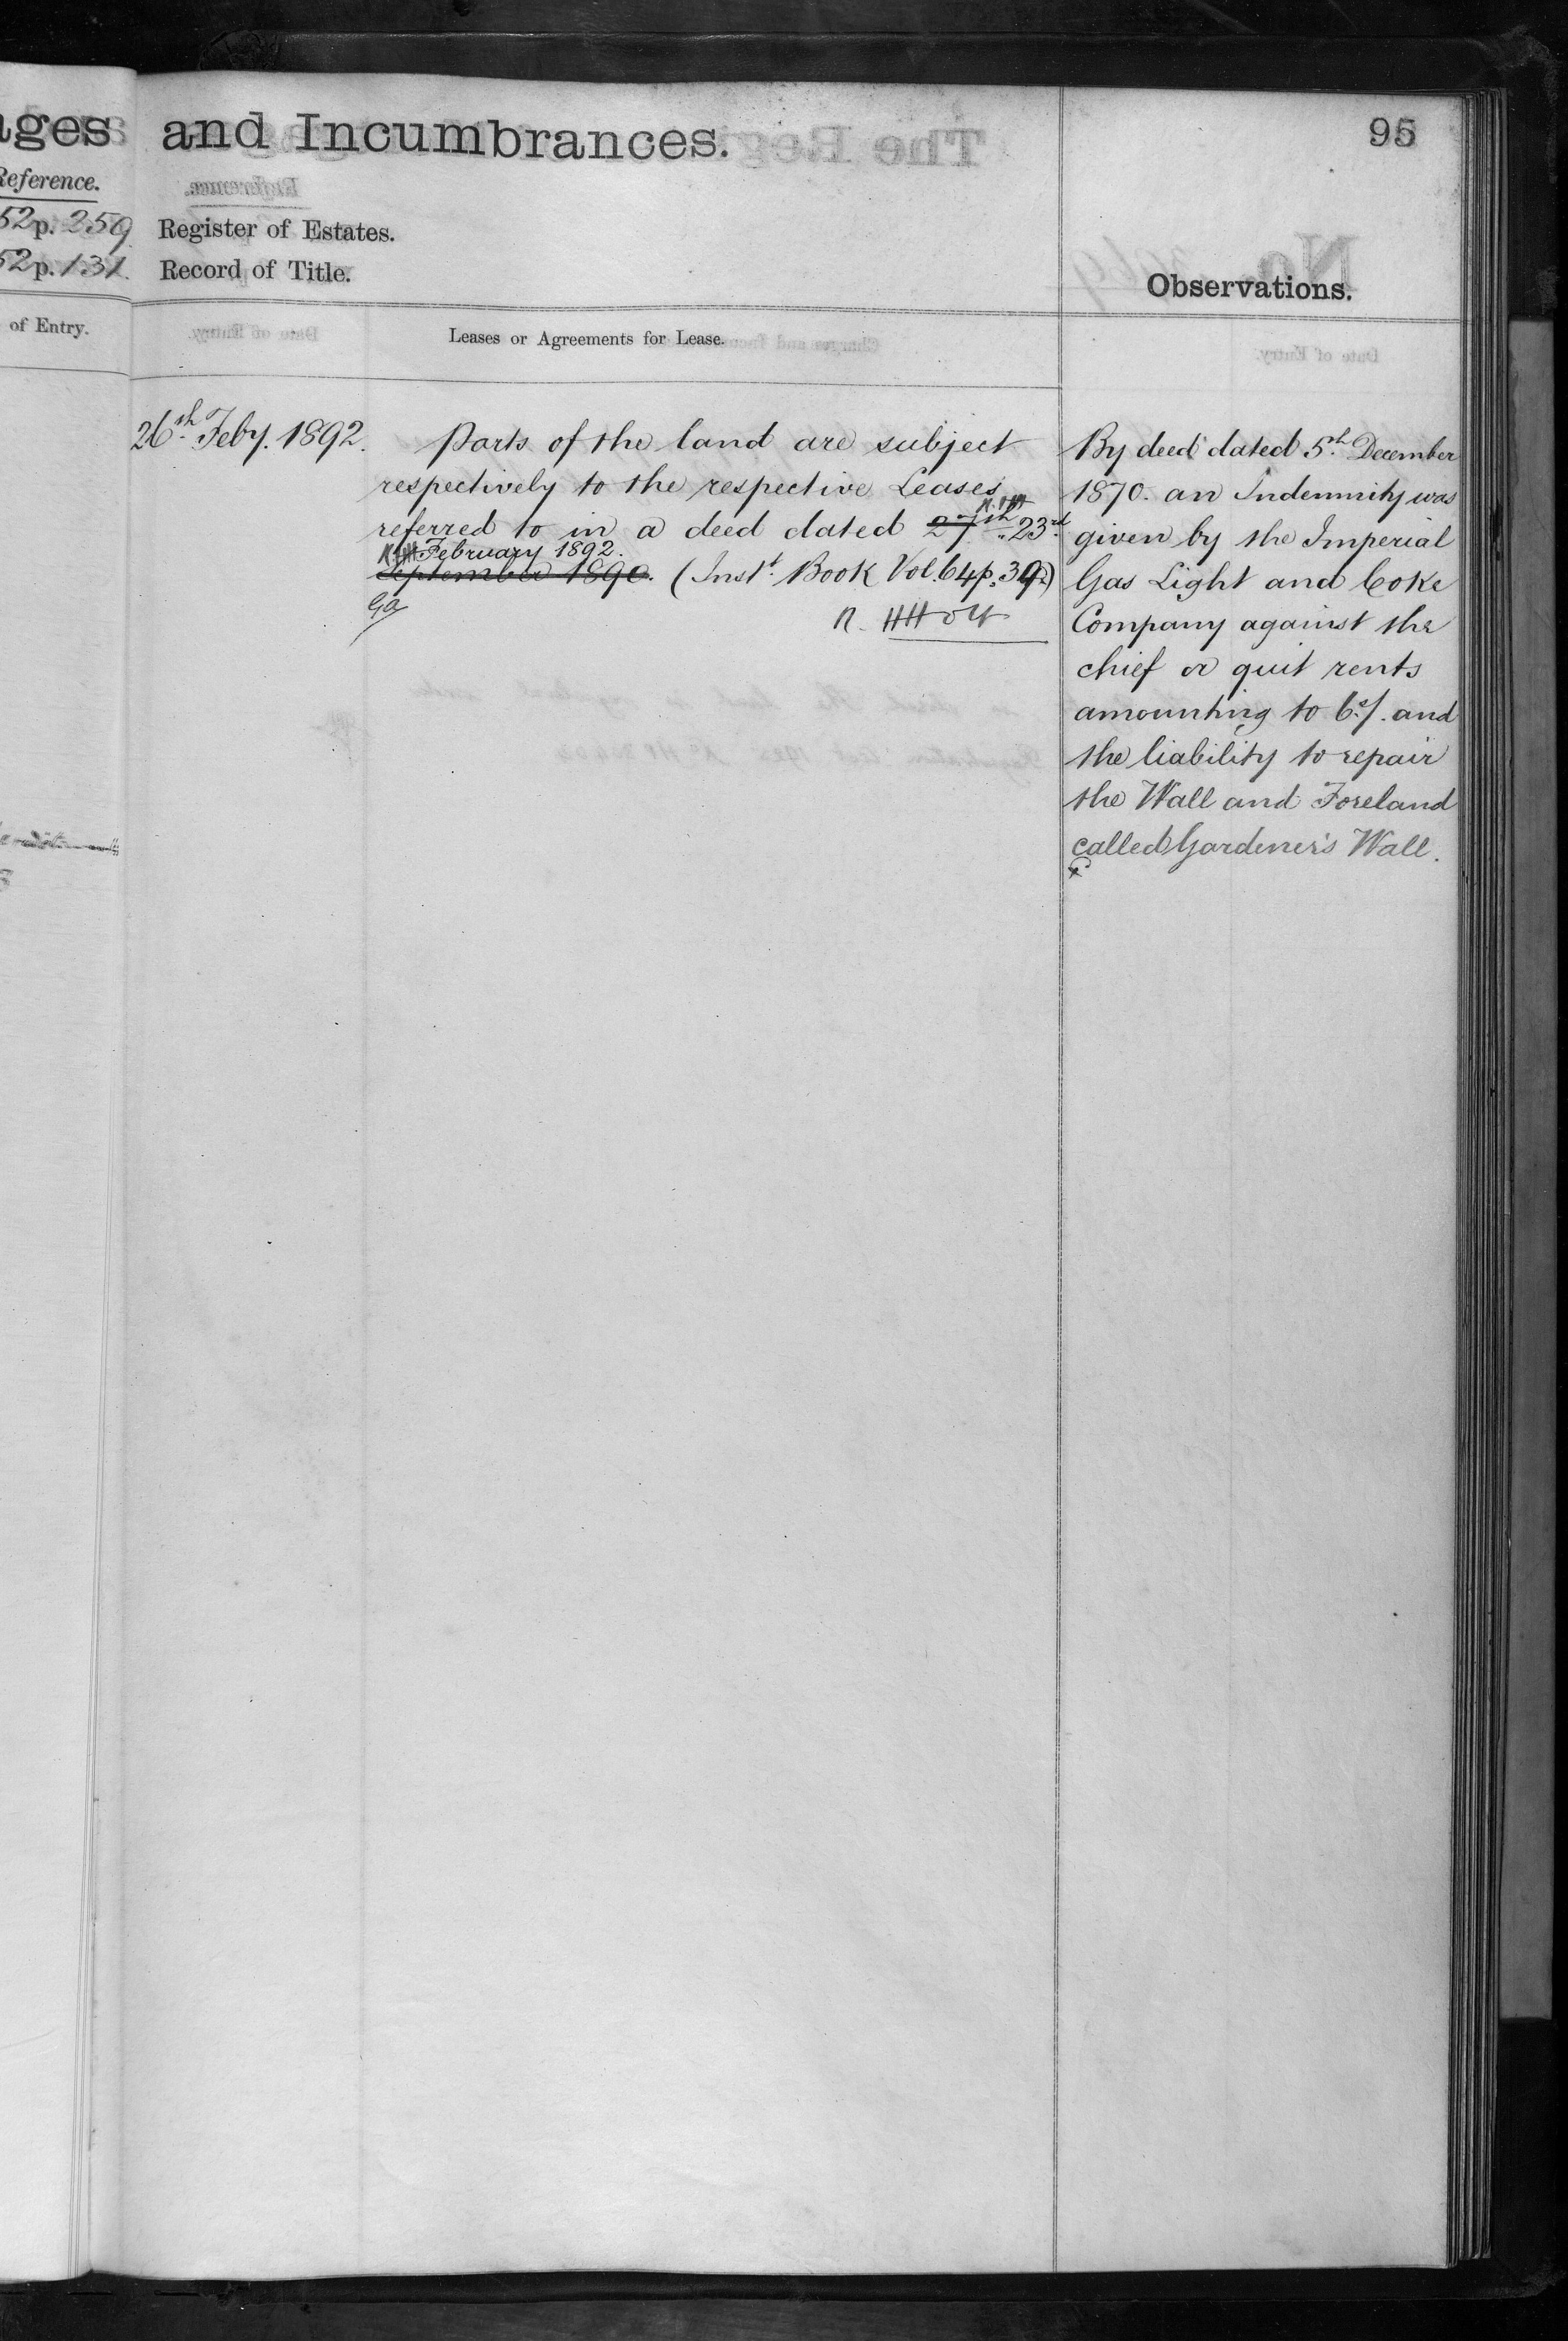 ages and Incumbrances.
95
Reference.
52 p. 259 Register of Estates.
52 p. 131. Record of Title.
Observations.
of Entry.
Leases or Agreements for Lease.
26th Feby. 1892.
Parts of the land are subject
respectively to the respective Leases
referred to in a deed dated 27th 23rd
February 1892.
September 1890. (Inst. Book Vol. 64 p.
By deed dated 5th December
1870. an Indemnity was
given by the Imperial
Gas Light and Coke
Company against the
chief or quit rents
amounting to 6s/. and
the liability to repair
the Wall and Foreland
called Gardener's Wall.